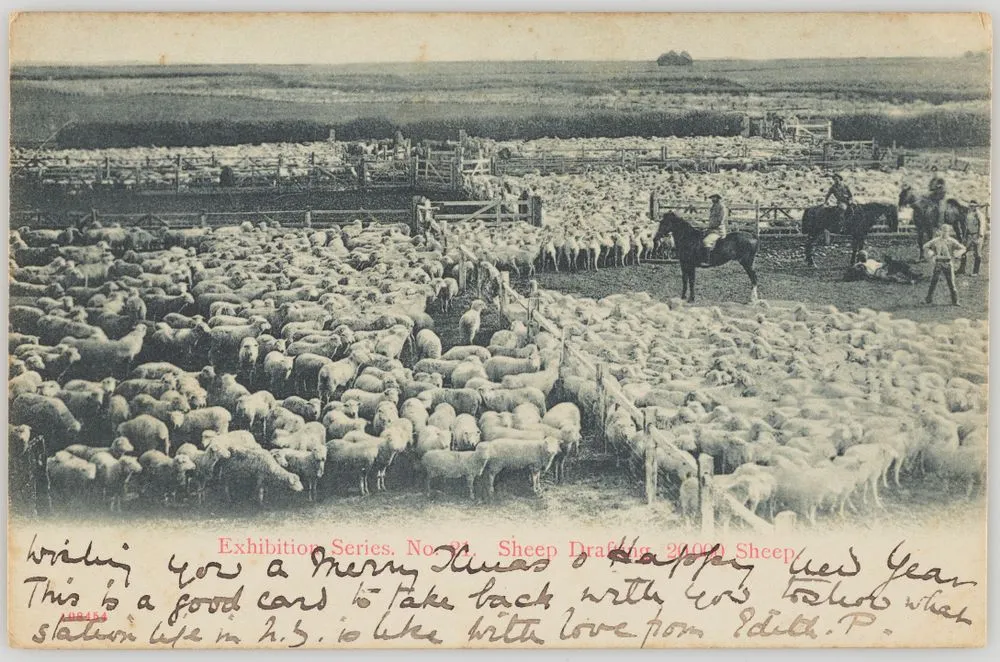 Exhibition Series. No. 21. Sheep Drafting, 20,000 Sheep.
Wishing you a Merry Xmas & Happy New Year
This is a good card to take back with you to show what
108454
station life in N.Z. is like With love from Edith. P.